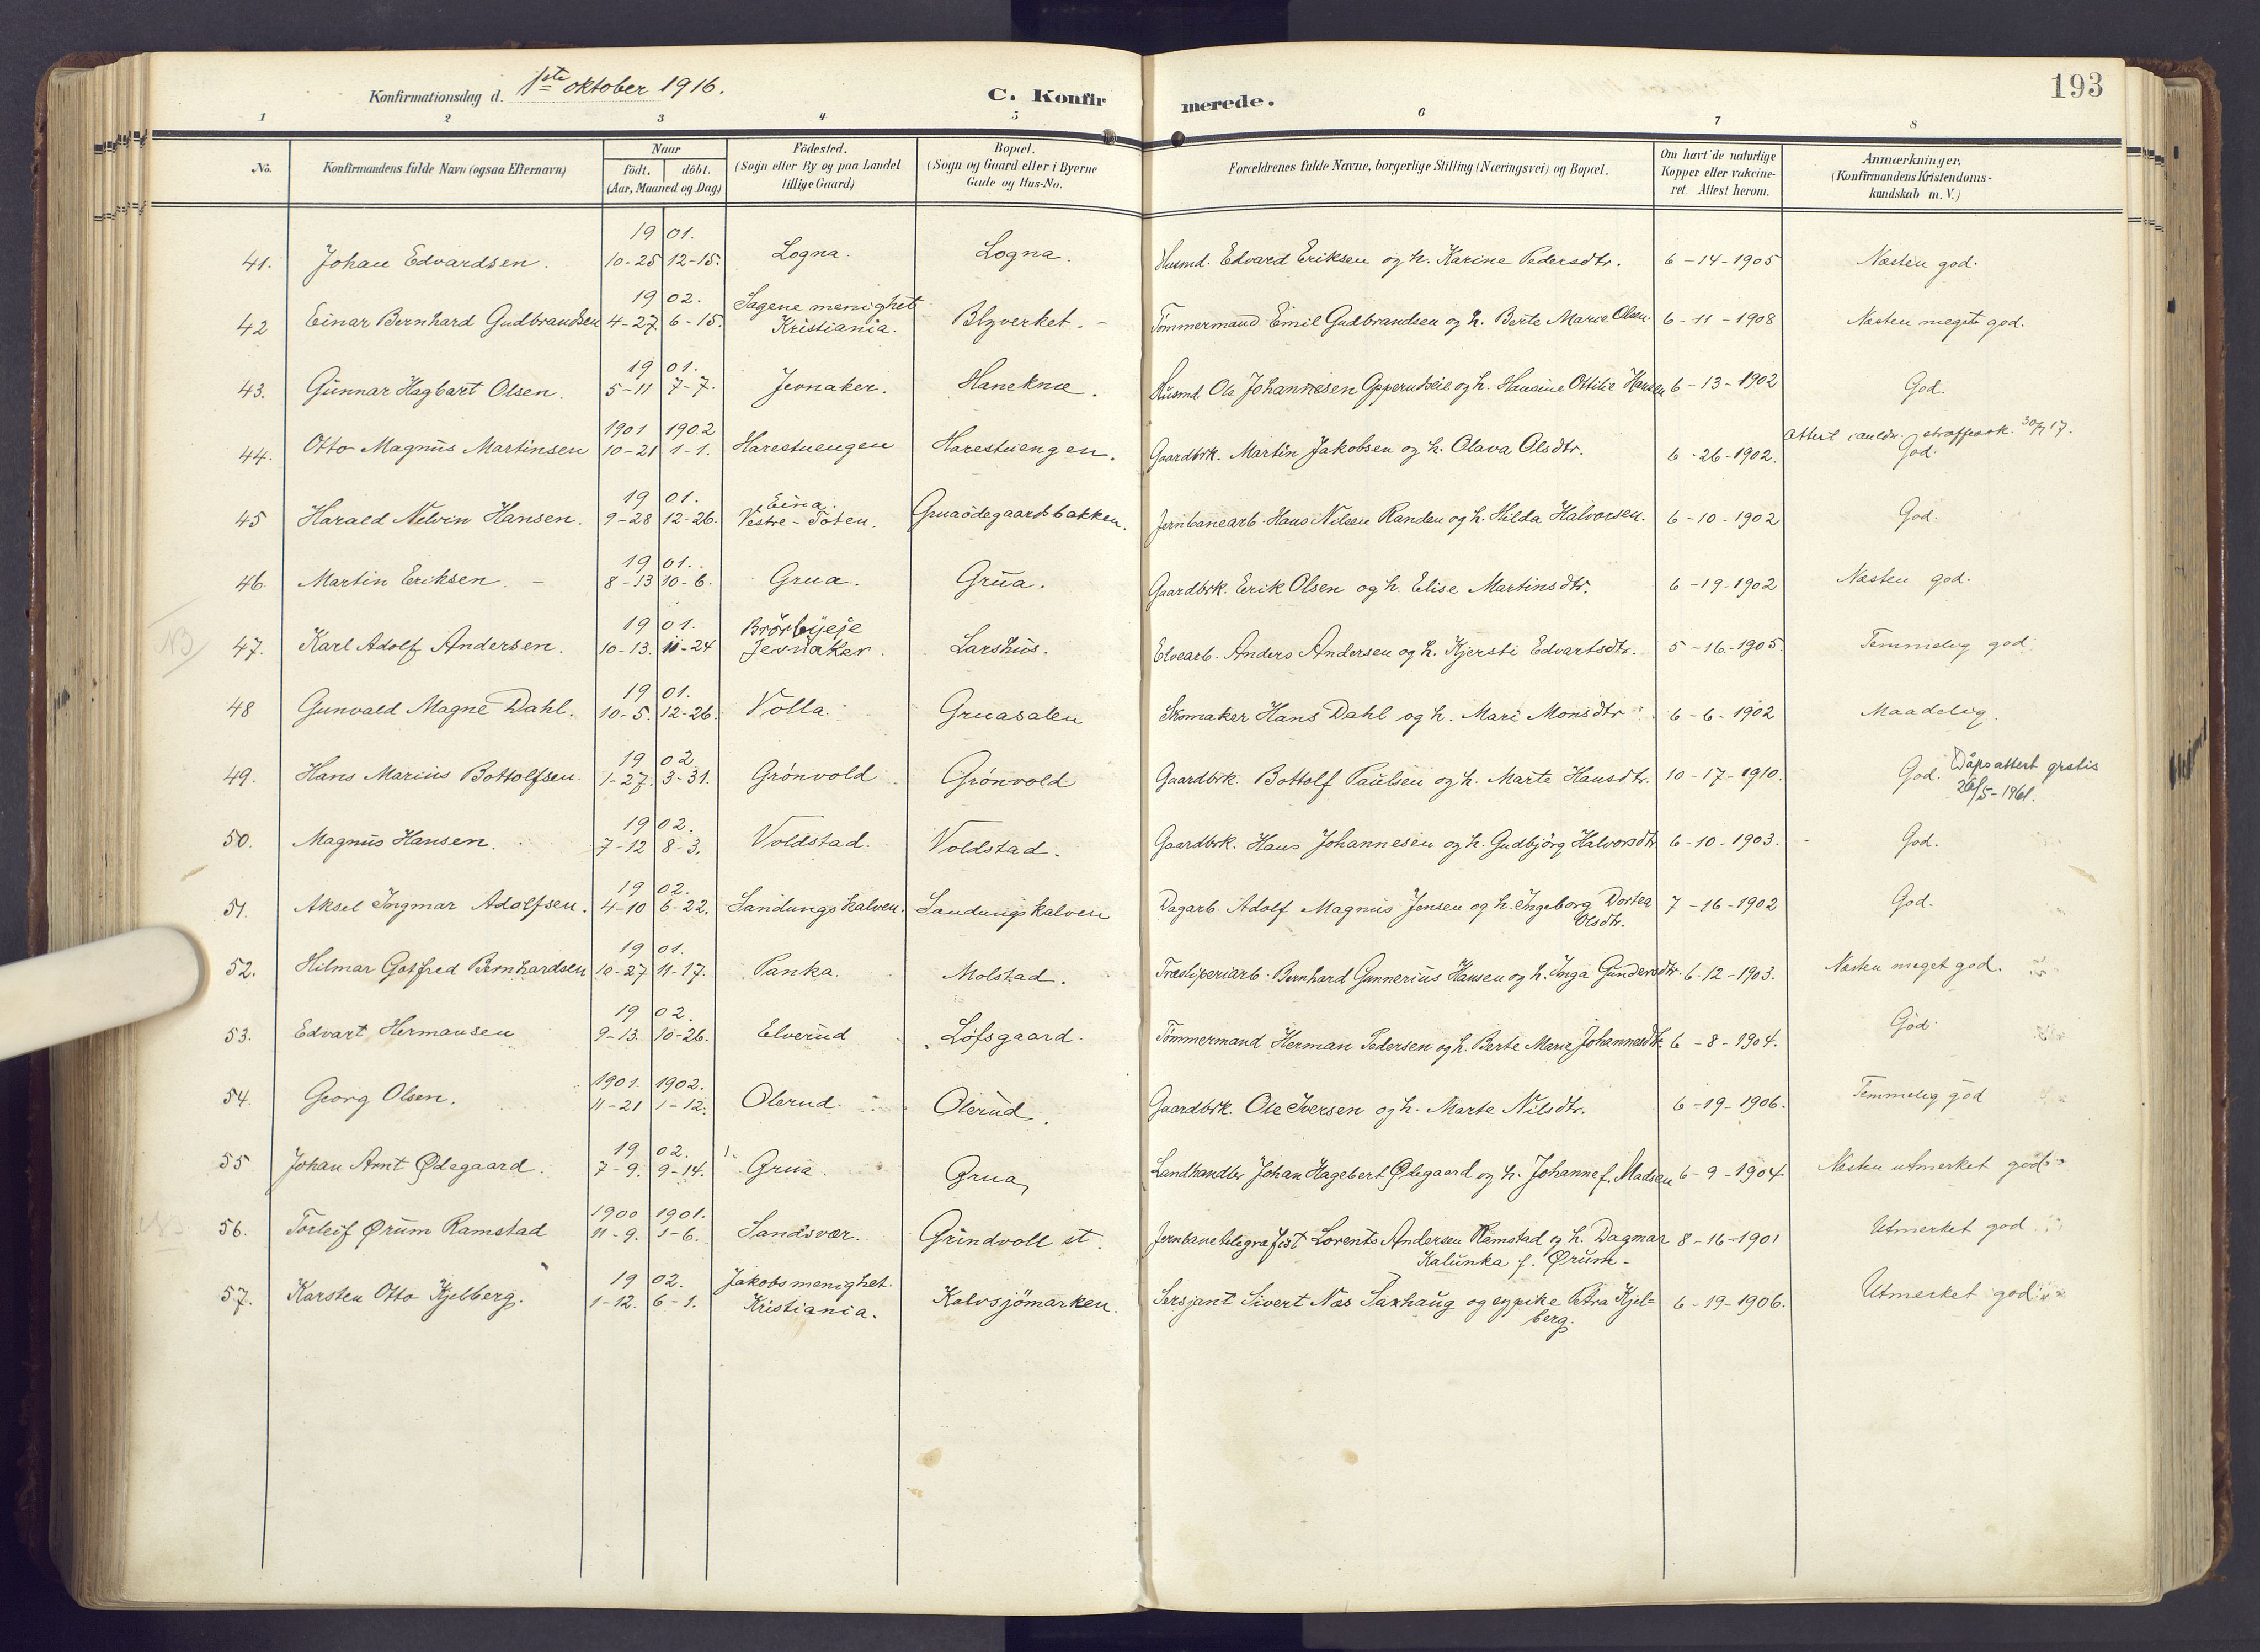 193
Konfirmationsdag d. 1ste oktober 1916.
C. Konfir merede.
1 2 3 4 5 6 7 8
No.
Konfirmandens fulde Navn (ogsaa Efternavn)
Naar
födt. döbt.
(Aar, Maaned og Dag)
Födested.
(Sogn eller By og paa Landet
tillige Gaard)
Bopæl.
(Sogn og Gaard eller i Byerne
Gade og Hus-No.
Forældrenes fulde Navne, borgerlige Stilling (Næringsvei) og Bopæl.
Om havt de naturlige
Kopper eller vakcine-
ret Attest herom.
Anmærkninger.
(Konfirmandens Kristendoms-
kundskab m. V.)
19 01.
41. Johan Edvardsen. 10-25 12-15. Logna. Logna. Husmd. Edvard Eriksen og h. Karine Pedersdtr. 6-14-1905 Næsten god.
19 02. Sagene menighet
42 Einar Bernhard Gudbrandsen 4-27. 6-15. Kristiania. Blyverket. - Tömmermand Emil Gudbrandsen og h. Berte Marie Olsen. 6-11-1908 Næsten meget god.
19 01.
43. Gunnar Hagbart Olsen. 5-11 7-7. Jevnaker. Haneknæ. Husmd. Ole Johannesen Opperudseie og h. Hansine Ottilie Hansen 6-13-1902 God.
1901 1902 Attest i anledn. straffesak 30/7 17.
44. Otto Magnus Martinsen 10-21 1-1. Harestuengen Harestuengen. Gaardbrk. Martin Jakobsen og h. Olava Olsdtr. 6-26-1902. God.
19 01. Eina.
45 Harald Nelvin Hansen. 9-28 12-26. Vestre-Toten. Gruaödegaardsbakken. Jernbanearb. Hans Nilsen Randen og h. Hilda Halvorsen. 6-10-1902 God.
19 01.
46 Martin Eriksen. - 8-13 10-6. Grua. Grua. Gaardbrk. Erik Olsen og h. Elise Martinsdtr. 6-19-1902 Næsten god.
19 01. Brörbyeje
NB 47. Karl Adolf Andersen. 10-13. 11-24 Jevnaker. Larshus. Elvearb. Anders Andersen og h. Kjersti Edvartsdtr. 5-16-1905. Temmelig god
19 01.
48 Gunvald Magne Dahl. 10-5. 12-26. Volla. Gruasalen Skomaker Hans Dahl og h. Mari Monsdtr 6-6-1902 Maadelig.
19 02
49. Hans Marius Bottolfsen. 1-27. 3-31. Grönvold Grönvold Gaardbrk. Bottolf Paulsen og h. Marte Hansdtr. 10-17-1910. God. Dåpsattest gratis
26/5-1961.
19 02.
50. Magnus Hansen. 7-12 8-3. Voldstad. Voldstad. Gaardbrk. Hans Johannesen og h. Gudbjörg Halvorsdtr 6-10-1903. God.
19 02.
51. Aksel Ingmar Adolfsen. 4-10 6-22. Sandungskalven. Sandungskalven Dagarb. Adolf Magnus Jensen og h. Ingeborg Dortea 7-16-1902 God.
Olsdtr.
19 01.
52. Hilmar Gotfred Bernhardsen 10-27 11-17. Panka. Molstad. Træsliperiarb. Bernhard Gunnerius Hansen og h. Inga Gundersdtr. 6-12-1903. Næsten meget god.
19 02.
53. Edvart Hermansen 9-13. 10-26. Elverud Löfsgaard. Tömmermand Herman Pedersen og h. Berte Marie Johannesdtr. 6-8-1904. God.
1901. 1902.
54. Georg Olsen. 11-21 1-12. Olerud. Olerud. Gaardbrk. Ole Iversen og h. Marte Nilsdtr. 6-19-1906. Temmelig god
19 02.
55 Johan Arnt Ødegaard. 7-9. 9-14. Grua Grua, Landhandler Johan Hagebert Ødegaard og h. Johanne f. Madsen 6-9-1904. Næsten utmerket god
1900 1901.
56. Torleif Ørum Ramstad 11-9. 1-6. Sandsvær. Grindvoll st. Jernbanetelegrafist Lorents Andersen Ramstad og h. Dagmar 8-16-1901 Utmerket god
Kalunka f. Ørum-
19 02. Jakobs menighet.
57. Karsten Otto Kjelberg. 1-12. 6-1. Kristiania. Kalvsjömarken. Sersjant Sivert Næs Saxhaug og ep. pike Petra Kjel= 6-19-1906. Utmerket god
berg.